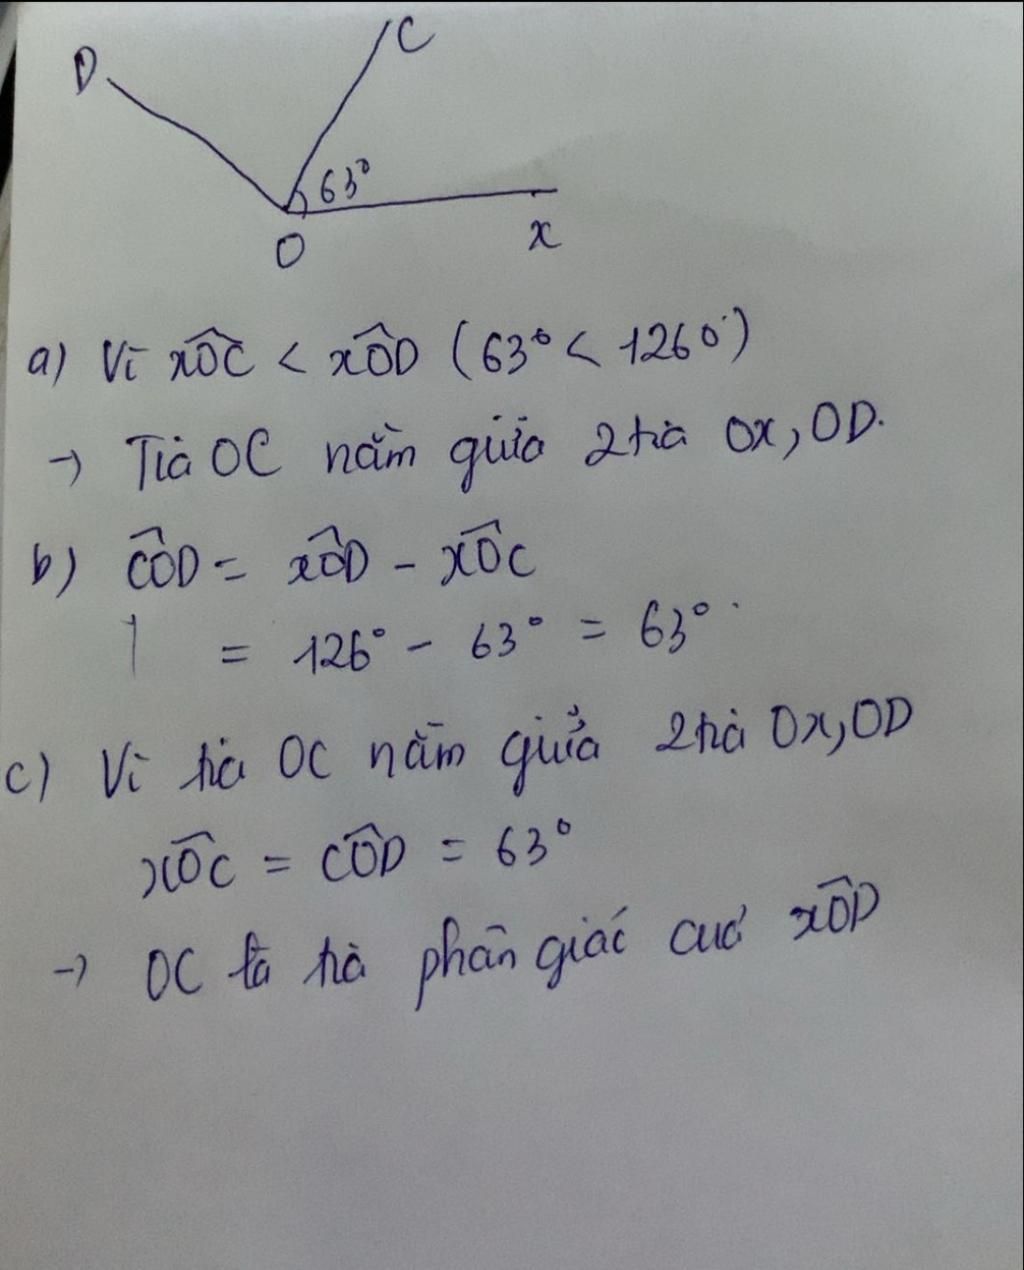 D
C
63°
O
x
a) Vì xÔC < xÔD (63° < 126°)
→ Tia OC nằm giữa 2 tia Ox, OD.
b) CÔD = xÔD - xÔC
= 126° - 63° = 63°
c) Vì tia OC nằm giữa 2 tia Ox, OD
xÔC = CÔD = 63°
→ OC là tia phân giác của xÔD